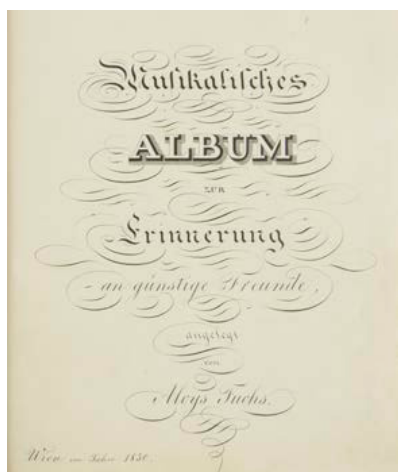 Musikalisches
ALBUM
ZUR
Erinnerung
- an günstige Freunde,
angelegt
von
Aloys Fuchs.
Wien im Jahre 1830.